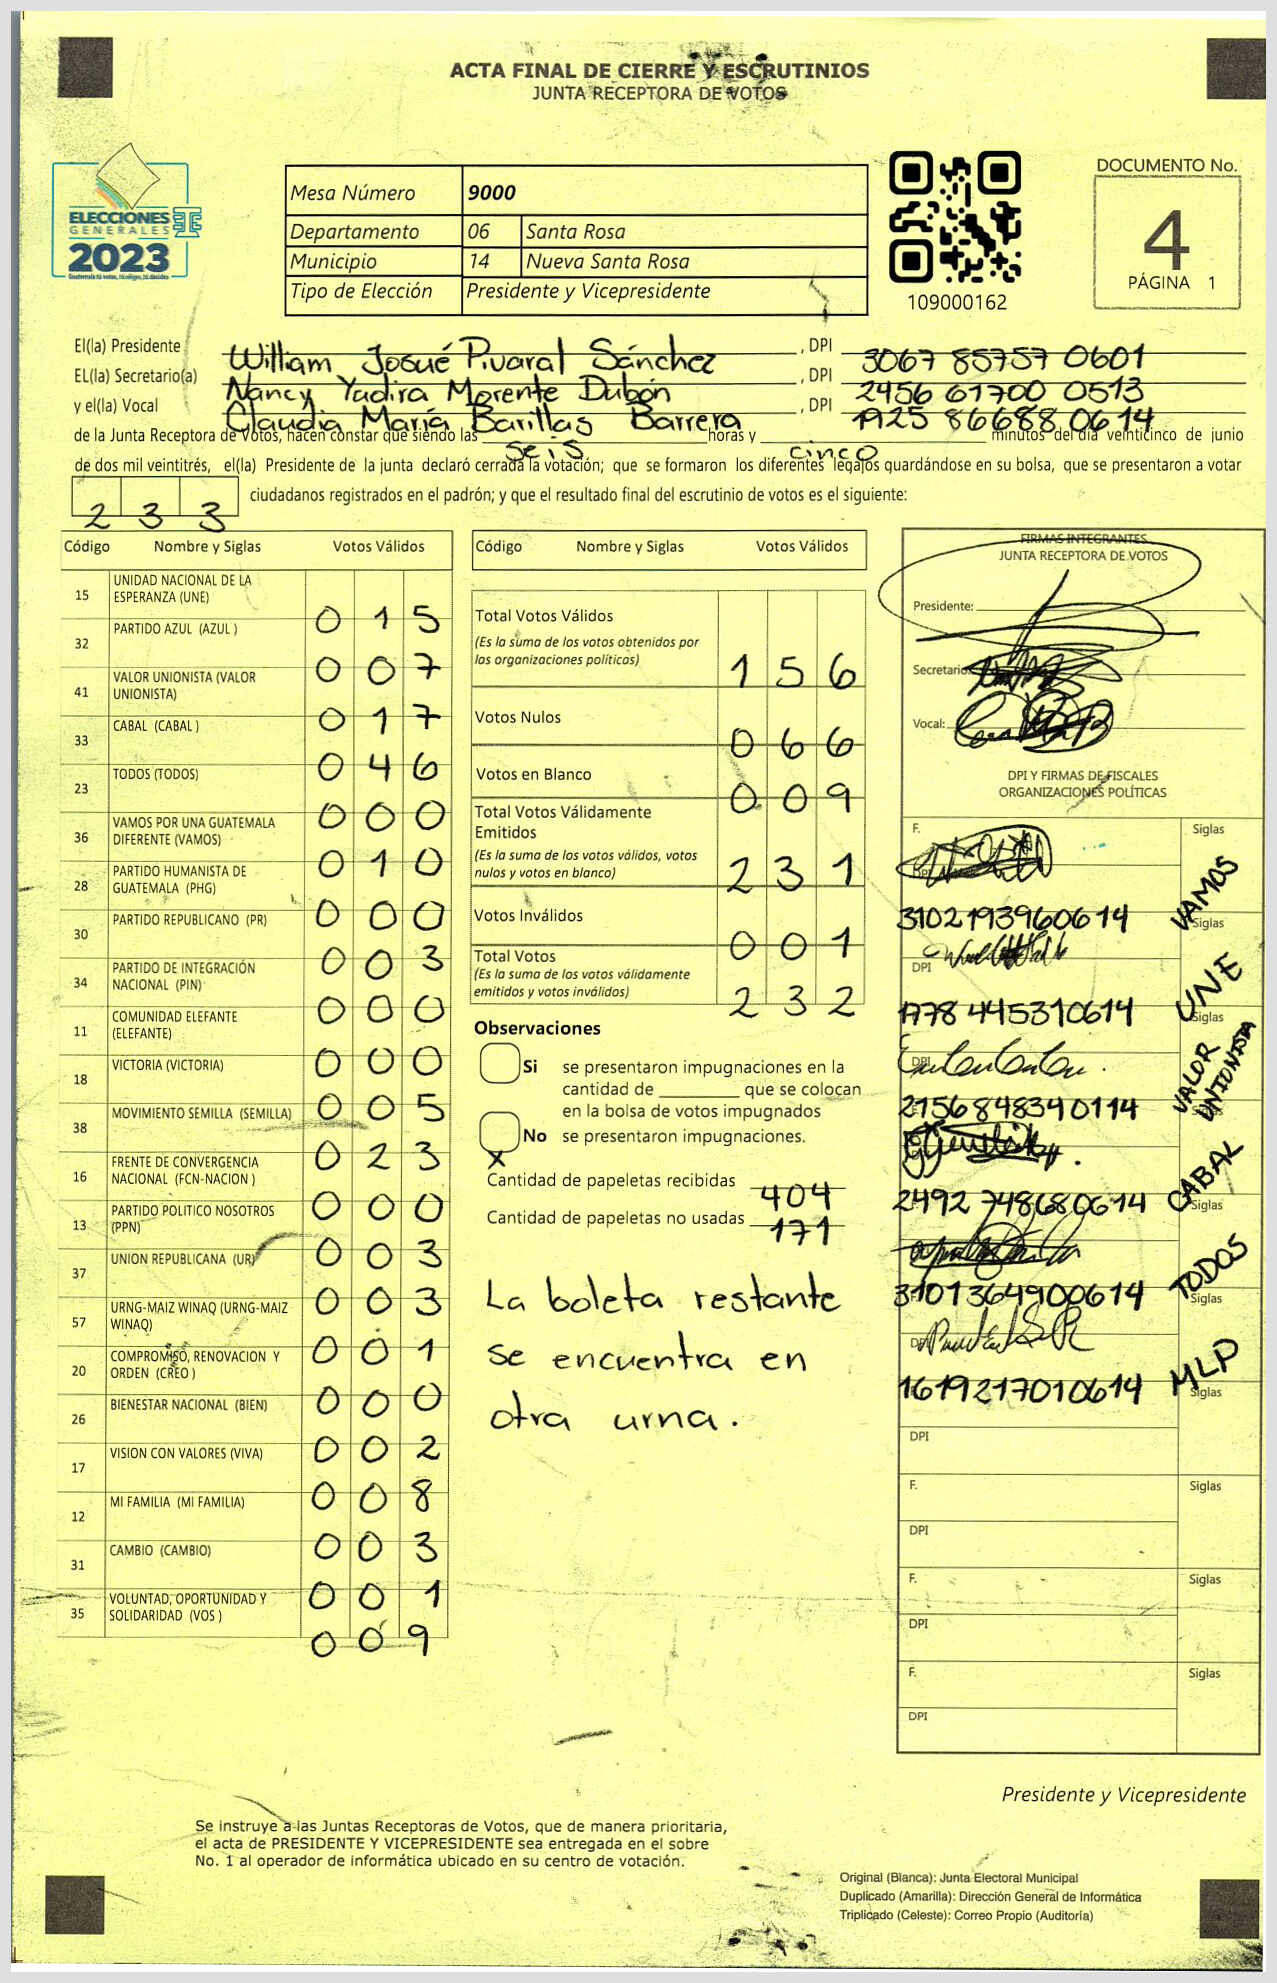 ACTA FINAL DE CIERRE Y ESCRUTINIOS
JUNTA RECEPTORA DE VOTOS
ELECCIONES
GENERALES
2023
Mesa Número 9000
Departamento 06 Santa Rosa
Municipio 14 Nueva Santa Rosa
Tipo de Elección Presidente y Vicepresidente
109000162
DOCUMENTO No.
4
PÁGINA 1
El(la) Presidente William Josué Pivaral Sánchez, DPI 3067 85757 0601
EL(la) Secretario(a) Nancy Yadira Morente Dubón, DPI 2456 61700 0513
y el(la) Vocal Claudia María Barillas Barrera, DPI 1925 86688 0614
de la Junta Receptora de Votos, hacen constar que siendo las seis horas y cinco minutos del día veinticinco de junio
de dos mil veintitrés, el(la) Presidente de la junta declaró cerrada la votación; que se formaron los diferentes legajos guardándose en su bolsa, que se presentaron a votar
2 3 3 ciudadanos registrados en el padrón; y que el resultado final del escrutinio de votos es el siguiente:
Código Nombre y Siglas Votos Válidos
15 UNIDAD NACIONAL DE LA ESPERANZA (UNE) 0 1 5
32 PARTIDO AZUL (AZUL ) 0 0 7
41 VALOR UNIONISTA (VALOR UNIONISTA) 0 1 7
33 CABAL (CABAL ) 0 4 6
23 TODOS (TODOS) 0 0 0
36 VAMOS POR UNA GUATEMALA DIFERENTE (VAMOS) 0 1 0
28 PARTIDO HUMANISTA DE GUATEMALA (PHG) 0 0 0
30 PARTIDO REPUBLICANO (PR) 0 0 3
34 PARTIDO DE INTEGRACIÓN NACIONAL (PIN) 0 0 0
11 COMUNIDAD ELEFANTE (ELEFANTE) 0 0 0
18 VICTORIA (VICTORIA) 0 0 5
38 MOVIMIENTO SEMILLA (SEMILLA) 0 2 3
16 FRENTE DE CONVERGENCIA NACIONAL (FCN-NACION ) 0 0 0
13 PARTIDO POLITICO NOSOTROS (PPN) 0 0 3
37 UNION REPUBLICANA (UR) 0 0 3
57 URNG-MAIZ WINAQ (URNG-MAIZ WINAQ) 0 0 1
20 COMPROMISO, RENOVACION Y ORDEN (CREO ) 0 0 0
26 BIENESTAR NACIONAL (BIEN) 0 0 2
17 VISION CON VALORES (VIVA) 0 0 8
12 MI FAMILIA (MI FAMILIA) 0 0 3
31 CAMBIO (CAMBIO) 0 0 1
35 VOLUNTAD, OPORTUNIDAD Y SOLIDARIDAD (VOS ) 0 0 9
Código Nombre y Siglas Votos Válidos
Total Votos Válidos
(Es la suma de los votos obtenidos por
las organizaciones políticas) 1 5 6
Votos Nulos 0 6 6
Votos en Blanco 0 0 9
Total Votos Válidamente
Emitidos
(Es la suma de los votos válidos, votos
nulos y votos en blanco) 2 3 1
Votos Inválidos 0 0 1
Total Votos
(Es la suma de los votos válidamente
emitidos y votos inválidos) 2 3 2
Observaciones
Si se presentaron impugnaciones en la
cantidad de ________ que se colocan
en la bolsa de votos impugnados
No se presentaron impugnaciones.
x
Cantidad de papeletas recibidas 404
Cantidad de papeletas no usadas 171
La boleta restante
se encuentra en
otra urna.
FIRMAS INTEGRANTES
JUNTA RECEPTORA DE VOTOS
Presidente:
Secretario:
Vocal:
DPI Y FIRMAS DE FISCALES
ORGANIZACIONES POLÍTICAS
F. Siglas
DPI 3102193960614 VAMOS
Siglas
DPI 1778 445310614 UNE
Siglas
DPI 2156848340114 VALOR UNIONISTA
Siglas
2492 748680614 CABAL
Siglas
3101364900614 TODOS
Siglas
DPI 1619217010614 MLP
Siglas
DPI
F. Siglas
DPI
F. Siglas
DPI
F. Siglas
DPI
Presidente y Vicepresidente
Se instruye a las Juntas Receptoras de Votos, que de manera prioritaria,
el acta de PRESIDENTE Y VICEPRESIDENTE sea entregada en el sobre
No. 1 al operador de informática ubicado en su centro de votación.
Original (Blanca): Junta Electoral Municipal
Duplicado (Amarilla): Dirección General de Informática
Triplicado (Celeste): Correo Propio (Auditoría)